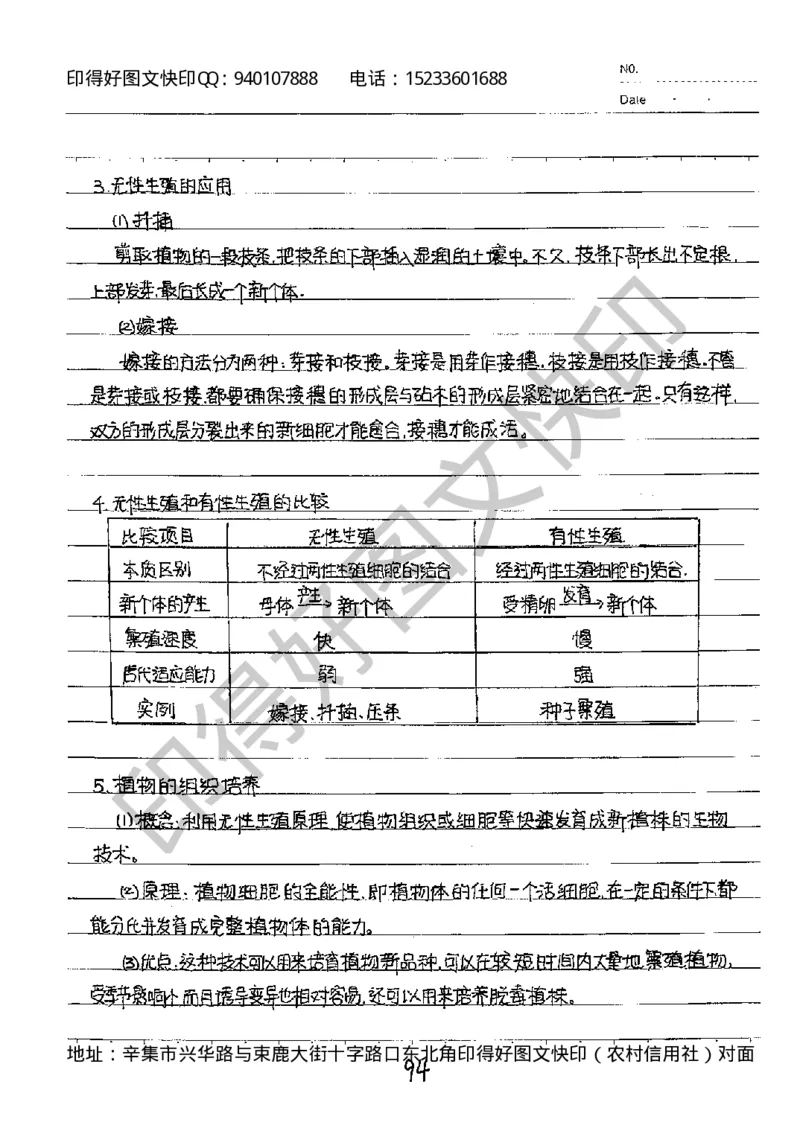 印得好图文快印QQ：940107888 电话：15233601688
NO.
Date
3.无性生殖的应用
(1)扦插
剪取植物的一段枝条,把枝条的下部插入湿润的土壤中。不久,枝条下部长出不定根,
上部发芽,最后长成一个新个体.
(2)嫁接
嫁接的方法分为两种:芽接和枝接。芽接是用芽作接穗,枝接是用枝作接穗.不管
是芽接或枝接,都要确保接穗的形成层与砧木的形成层紧密地结合在一起。只有这样,
双方的形成层分裂出来的新细胞才能愈合,接穗才能成活。
4.无性生殖和有性生殖的比较
比较项目 无性生殖 有性生殖
本质区别 不经过两性生殖细胞的结合 经过两性生殖细胞的结合.
新个体的产生 母体 产生→ 新个体 受精卵 发育→ 新个体
繁殖速度 快 慢
后代适应能力 弱 强
实例 嫁接、扦插、压条 种子繁殖
5.植物的组织培养
(1)概念:利用无性生殖原理,使植物组织或细胞等快速发育成新植株的生物
技术。
(2)原理:植物细胞的全能性,即植物体的任何一个活细胞,在一定的条件下都
能分化并发育成完整植物体的能力。
(3)优点:这种技术可以用来培育植物新品种,可以在较短时间内大量地繁殖植物,
受季节影响小,而且诱导变异也相对容易,还可以用来培养脱毒植株。
地址：辛集市兴华路与束鹿大街十字路口东北角印得好图文快印（农村信用社）对面
94
印得好图文快印